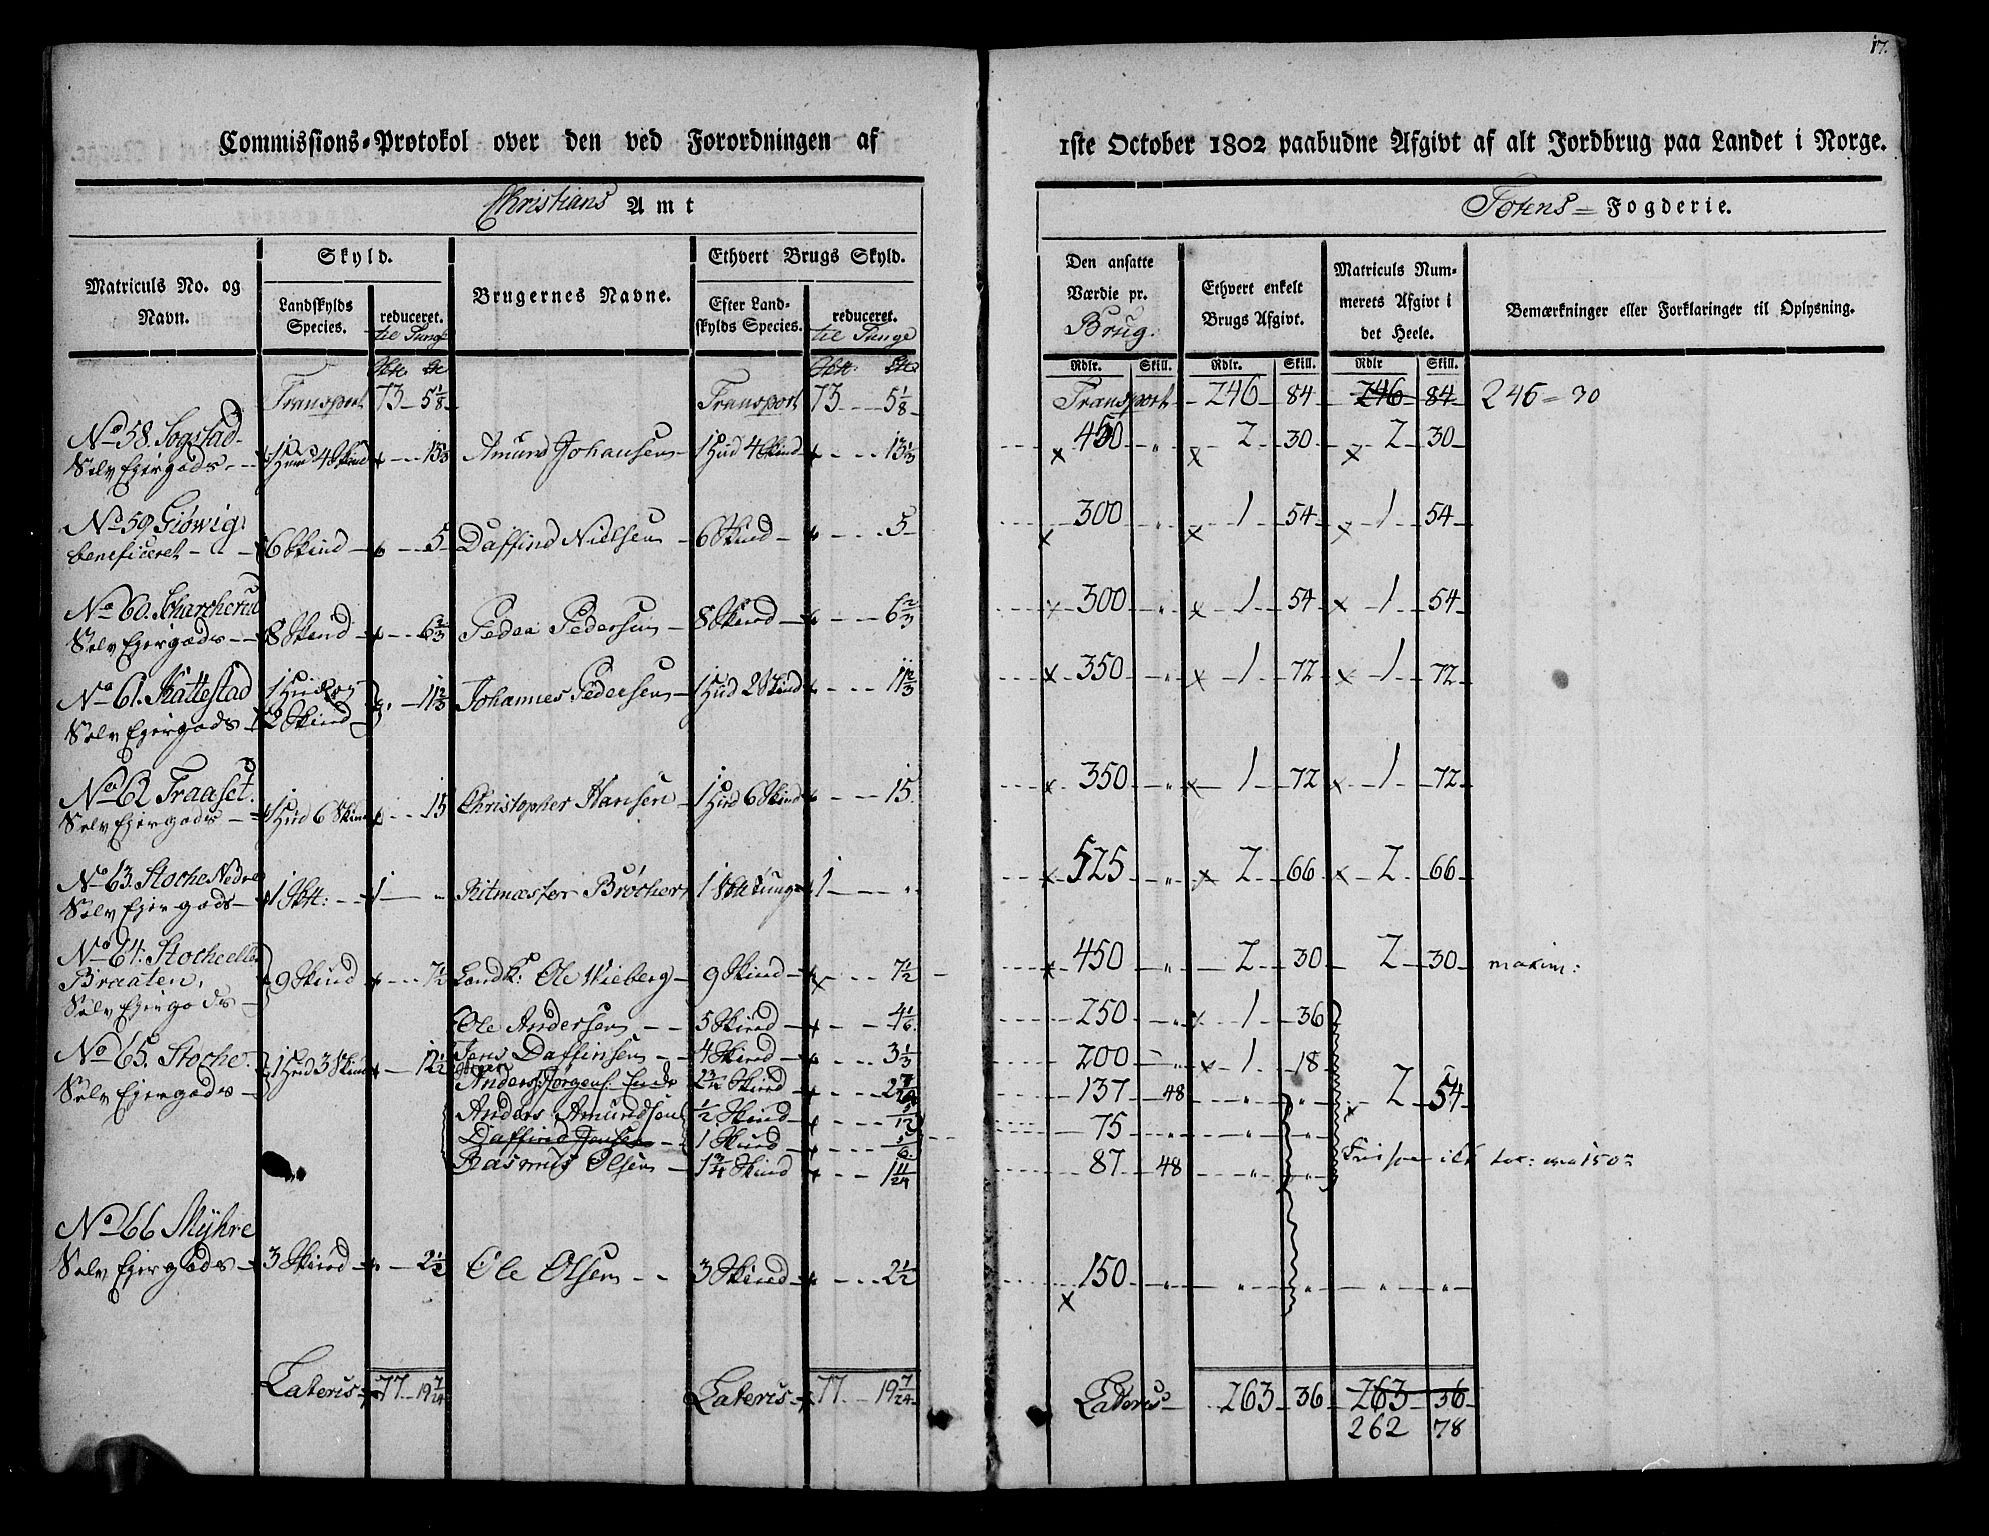 17.
Commissions-Protokol over den ved Forordningen af 1ste October 1802 paabudne Afgivt af alt Jordbrug paa Landet i Norge.
Christians Amt
Totens Fogderie.
Matriculs No. og Navn.
Skyld.
Landskylds Species.
reduceret. til Tunge
Brugernes Navne.
Ethvert Brugs Skyld.
Efter Landskylds Species.
reduceret. til Tunge
Den ansatte Værdie pr. Brug.
Ethvert enkelt Brugs Afgivt.
Matriculs Nummerets Afgivt i det Heele.
Bemærkninger eller Forklaringer til Oplysning.
Rdlr. Skill. Rdlr. Skill. Rdlr Skill.
Transport 73 5 1/8 Transport 73 5 1/8 Transport 246 84 246 84 246 = 30
No 58. Sogstad
Selv Ejergods 1 Hud 4 Skind 13 1/3 Amund Johansen 1 Hud 4 Skind 13 1/3 450 2 30 2 30
No 59 Giöwig
beneficeret 6 Skind 5 Daffind Nielsen 6 Skind 5 300 1 54 1 54
No 60.
Selv Ejergods 8 Skind 6 2/3 Peder Pedersen 8 Skind 6 2/3 300 1 54 1 54
No 61. Skattestad 1 Hud og
Selv Ejergods 2 Skind 11 2/3 Johannes Pedersen 1 Hud 2 Skind 11 2/3 350 1 72 1 72
No 62 Fraaset
Selv Ejergods 1 Hud 6 Skind 15 Christopher Hansen 1 Hud 6 Skind 15 350 1 72 1 72
No 63. Stocke Nedre
Selv Ejergods 1 Sktt: 1 Ritmæster Bröcher 1 Sktt Tunge 1 525 2 66 2 66
No 64. Stocke eller
Braaten,
Selv Ejergods 9 Skind 7 1/2 Ole Wieberg 9 Skind 7 1/2 450 2 30 2 30 maxim:
Ole Andersen 5 Skind 4 1/6 250 1 36
No 65. Stocke
Selv Ejergods 1 Hud 3 Skind 12 1/2 Jens Daffinsen 4 Skind 3 1/3 200 1 18
Anders Jörgens. Skind 137 48 2 54
Anders Amundsen 1/2 Skind 5/12 75
Daffind Jensen 1 Skind 5/6
Rasmus Olsen 1 3/4 Skind 1 11/24 87 48
No 66 Myhre
Selv Ejergods 3 Skind 2 1/2 Ole Olsen 3 Skind 2 1/2 150
Lateris 77 19 7/24 Lateris 77 19 7/24 Lateris 263 36 263 36
262 78